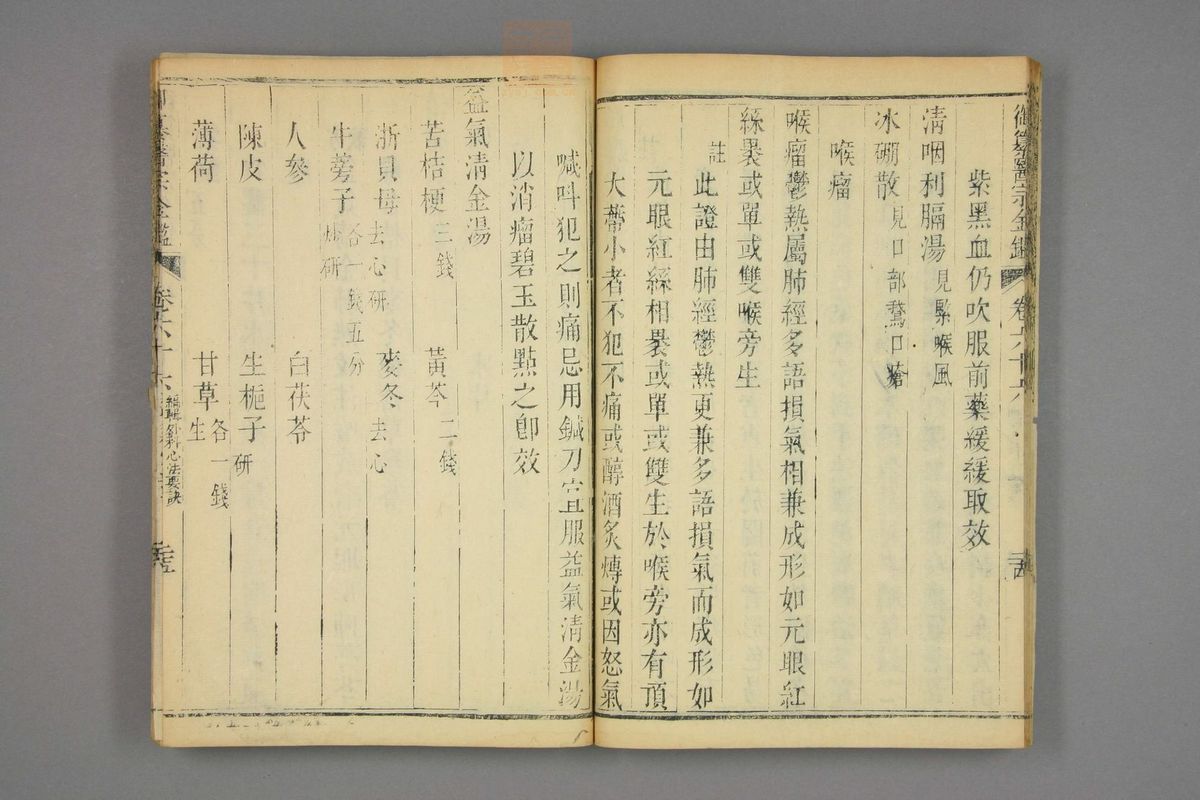 御纂醫宗金鑑 卷六十六
紫黑血仍吹服前藥緩緩取效
淸咽利膈湯見緊喉風
冰硼散見口部鵞口瘡
喉瘤
喉瘤鬱熱屬肺經多語損氣相兼成形如元眼紅
絲裹或單或雙喉旁生
註此證由肺經鬱熱更兼多語損氣而成形如
元眼紅絲相裹或單或雙生於喉旁亦有頂
大蒂小者不犯不痛或醇酒炙煿或因怒氣
喊呌犯之則痛忌用鍼刀宜服益氣淸金湯
以消瘤碧玉散點之卽效
益氣淸金湯
苦桔梗三錢 黃芩二錢
浙貝母去心研 麥冬去心
牛蒡子炒研各一錢五分
人參 白茯苓
陳皮 生梔子研
薄荷 甘草生各一錢
宗金鑑 卷六十六 編輯外科心法要訣 二十五